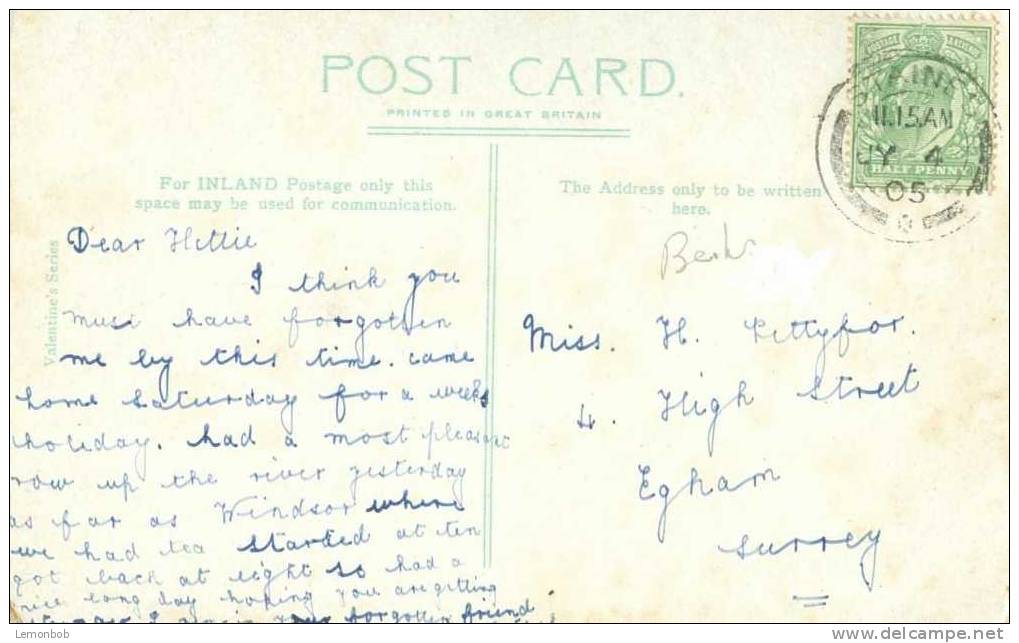 POST CARD.
PRINTED IN GREAT BRITAIN
For INLAND Postage only this
space may be used for communication.
The Address only to be written
here.
Valentine's Series
POSTAGE & REVENUE
HALF PENNY
STAINES
11.15 AM
JY 4
05
Berks
Dear Hettie
I think you
must have forgotten
me by this time. came
home saturday for a weeks
holiday. had a most pleasant
row up the river yesterday
as far as Windsor where
we had tea started at ten
got back at eight so had a
nice long day hoping you are getting
I remain your forgotten friend
Miss. H. Pettyfor.
4. High Street
Egham
Surrey
Lemonbob
www.delcampe.net